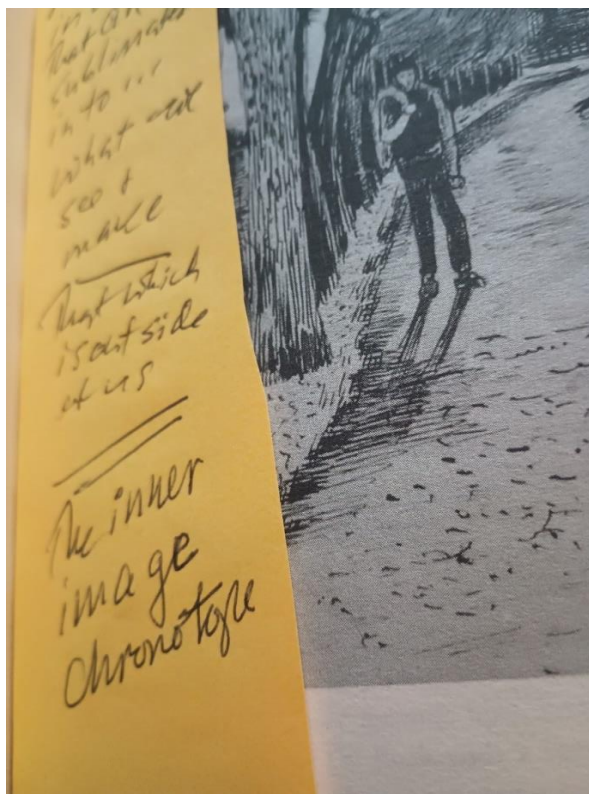 that
sublimates
in to ...
what
see &
make
That which
is outside
of us
The inner
image
chronotope